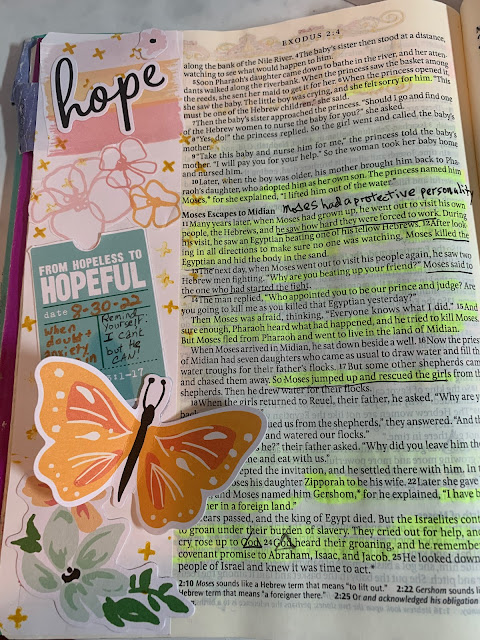 EXODUS 2:4
along the bank of the Nile River. 4The baby's sister then stood at a distance,
watching to see what would happen to him.
5Soon Pharaoh's daughter came down to bathe in the river, and her atten-
dants walked along the riverbank. When the princess saw the basket among
the reeds, she sent her maid to get it for her. 6When the princess opened it,
she saw the baby. The little boy was crying, and she felt sorry for him. "This
must be one of the Hebrew children," she said.
7Then the baby's sister approached the princess. "Should I go and find one
of the Hebrew women to nurse the baby for you?" she asked.
8"Yes, do!" the princess replied. So the girl went and called the baby's
mother.
9"Take this baby and nurse him for me," the princess told the baby's
mother. "I will pay you for your help." So the woman took her baby home
and nursed him.
10Later, when the boy was older, his mother brought him back to Pha-
raoh's daughter, who adopted him as her own son. The princess named him
Moses,* for she explained, "I lifted him out of the water."
moses had a protective personality
Moses Escapes to Midian
11Many years later, when Moses had grown up, he went out to visit his own
people, the Hebrews, and he saw how hard they were forced to work. During
his visit, he saw an Egyptian beating one of his fellow Hebrews. 12After look-
ing in all directions to make sure no one was watching, Moses killed the
Egyptian and hid the body in the sand.
13The next day, when Moses went out to visit his people again, he saw two
Hebrew men fighting. "Why are you beating up your friend?" Moses said to
the one who had started the fight.
14The man replied, "Who appointed you to be our prince and judge? Are
you going to kill me as you killed that Egyptian yesterday?"
Then Moses was afraid, thinking, "Everyone knows what I did." 15And
sure enough, Pharaoh heard what had happened, and he tried to kill Moses.
But Moses fled from Pharaoh and went to live in the land of Midian.
When Moses arrived in Midian, he sat down beside a well. 16Now the priest
of Midian had seven daughters who came as usual to draw water and fill the
water troughs for their father's flocks. 17But some other shepherds came
and chased them away. So Moses jumped up and rescued the girls from the
shepherds. Then he drew water for their flocks.
18When the girls returned to Reuel, their father, he asked, "Why are you
back
ued us from the shepherds," they answered. "And th
and watered our flocks."
he?" their father asked. "Why did you leave him the
me and eat with us."
epted the invitation, and he settled there with him. In t
oses his daughter Zipporah to be his wife. 22Later she gave
and Moses named him Gershom,* for he explained, "I have b
er in a foreign land."
ears passed, and the king of Egypt died. But the Israelites cont
to groan under their burden of slavery. They cried out for help, and
cry rose up to God. 24God heard their groaning, and he remembe
covenant promise to Abraham, Isaac, and Jacob. 25He looked down
people of Israel and knew it was time to act.*
2:10 Moses sounds like a Hebrew term that means "to lift out." 2:22 Gershom sounds li
Hebrew term that means "a foreigner there." 2:25 Or and acknowledged his obligation
hope
FROM HOPELESS TO
HOPEFUL
date 9-30-22
When
doubt +
anxiety
Remind
yourself:
I can't
but He
CAN!
11-17